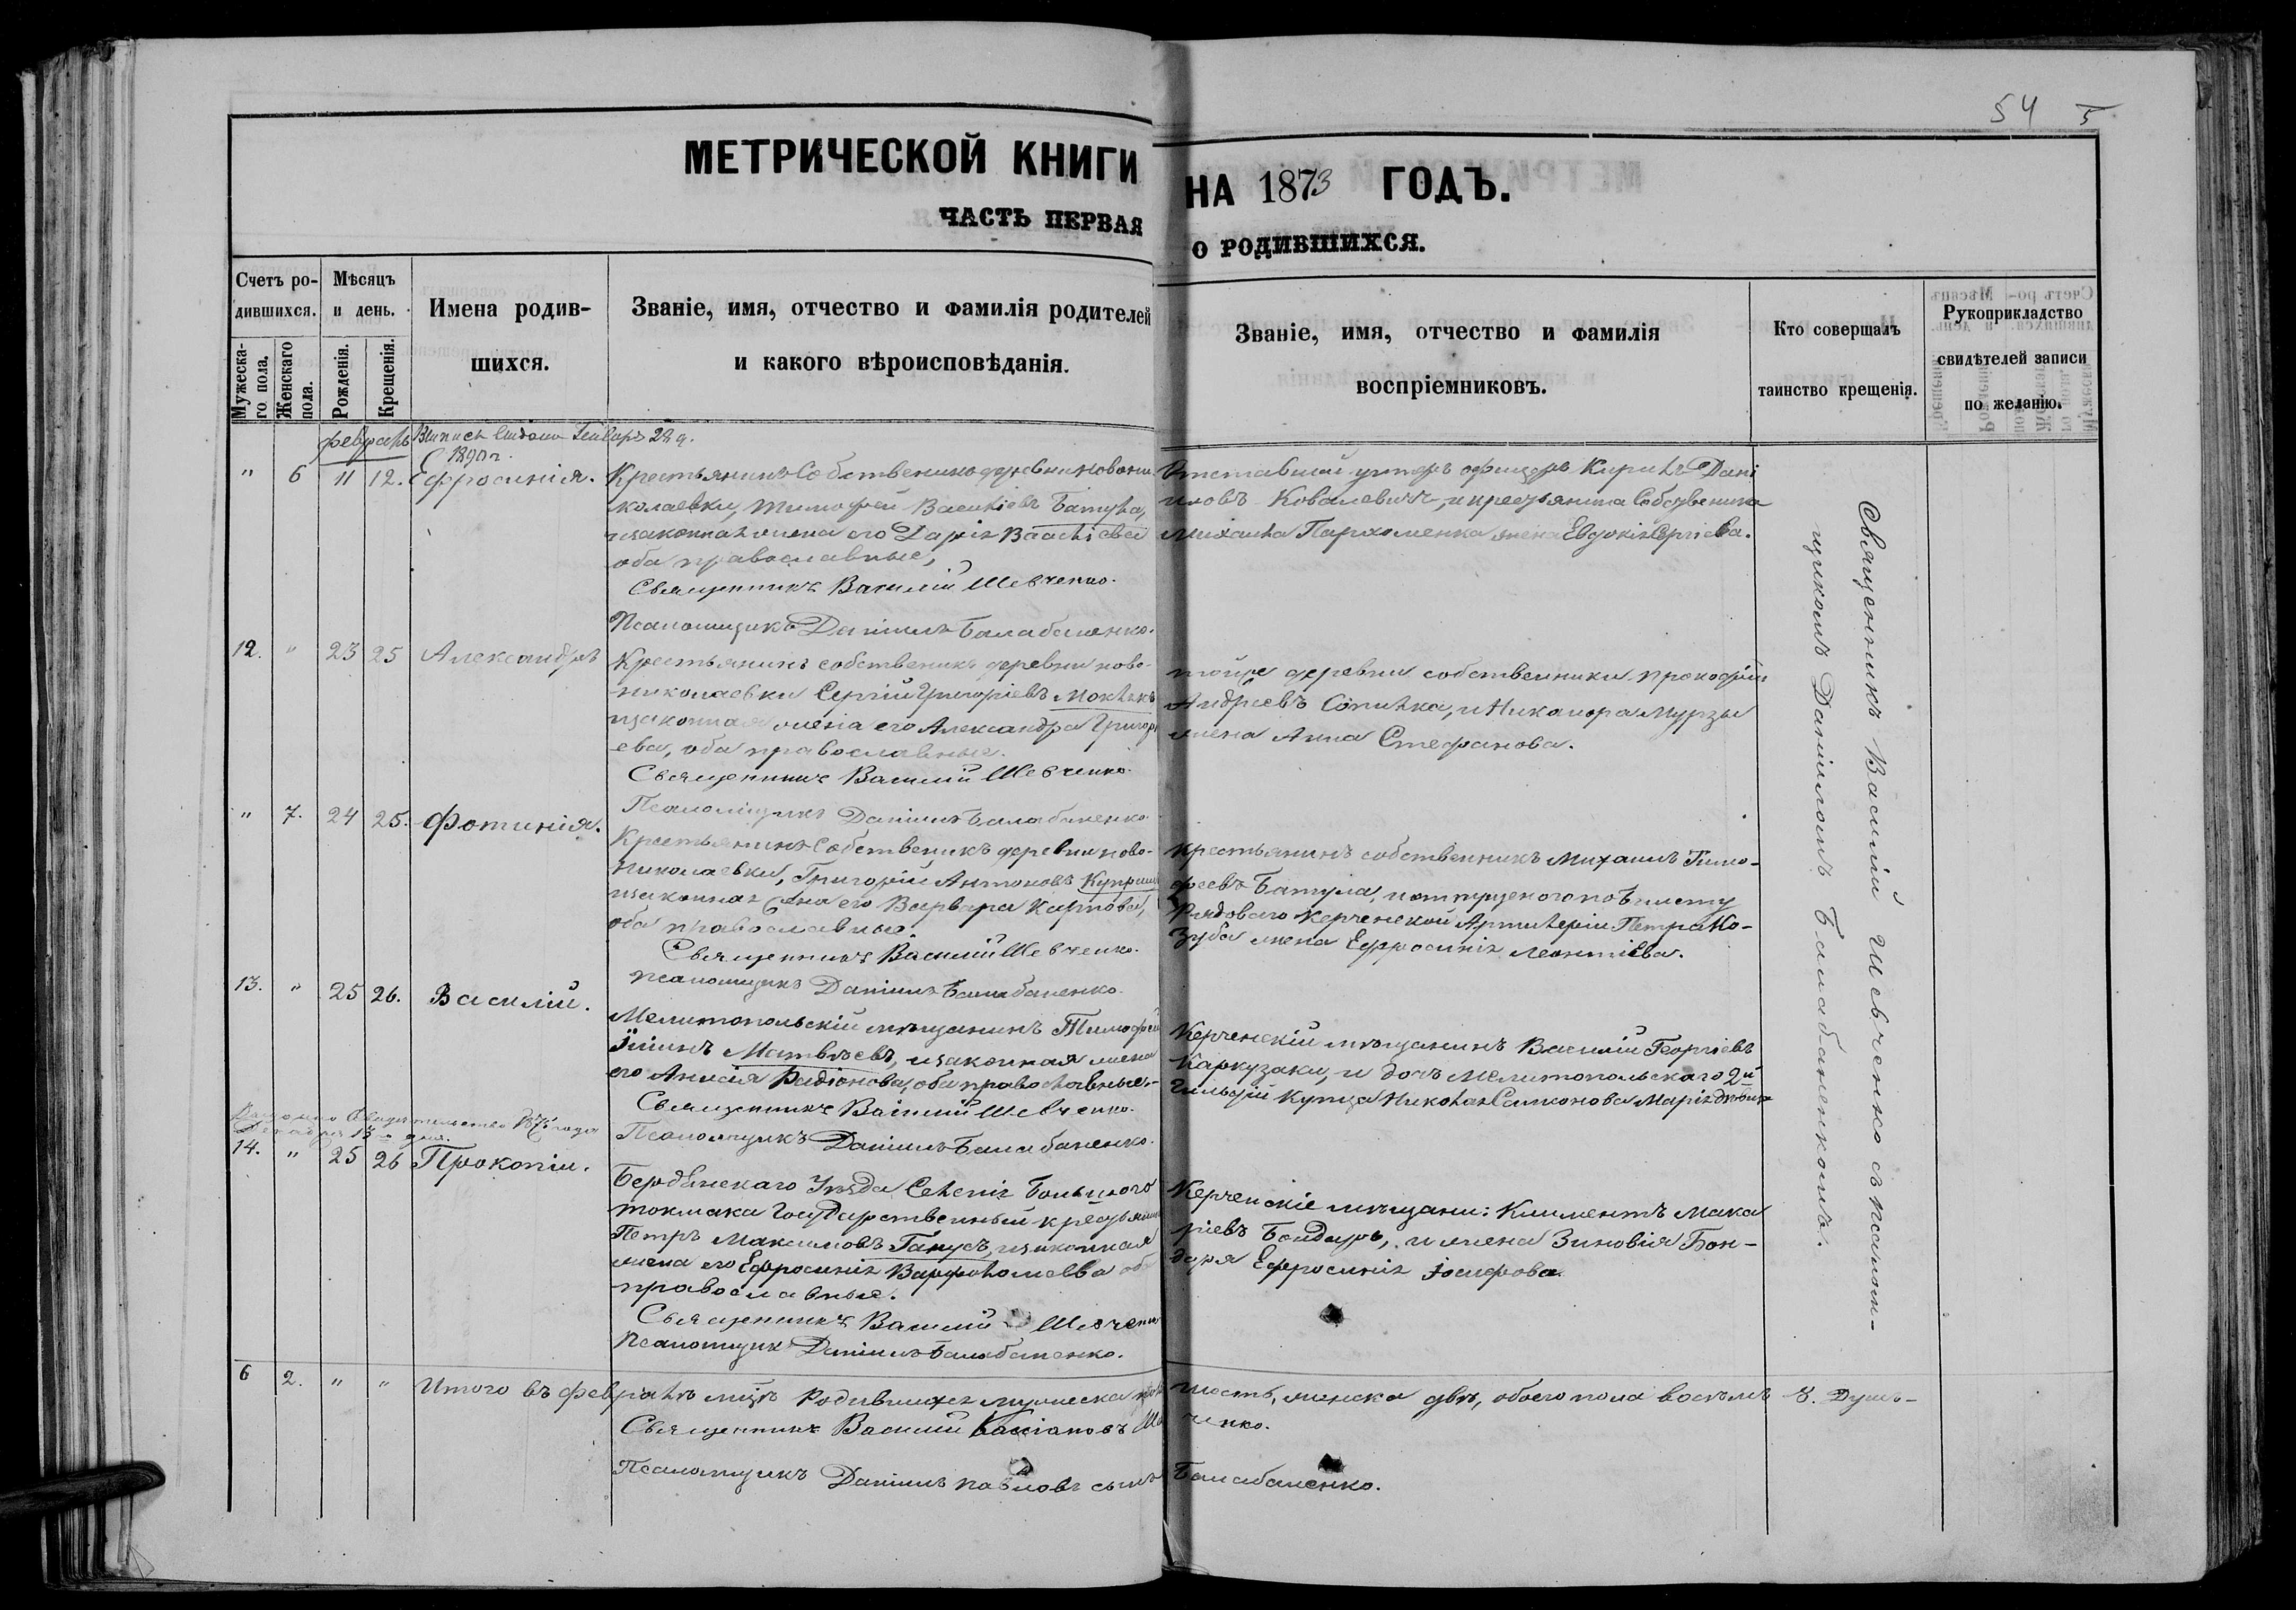 54 5
МЕТРИЧЕСКОЙ КНИГИ НА 1873 ГОДЪ.
ЧАСТЬ ПЕРВАЯ О РОДИВШИХСЯ.
Счетъ ро-
дившихся.
Мужеска-
го пола.
Женскаго
пола.
Мѣсяцъ
и день.
Рожденія.
Крещенія.
Имена родив-
шихся.
Званіе, имя, отчество и фамилія родителей
и какого вѣроисповѣданія.
Званіе, имя, отчество и фамилія
воспріемниковъ.
Кто совершалъ
таинство крещенія.
Рукоприкладство
свидѣтелей записи
по желанію.
февраль
1890 г.
" 6 11 12. Ефросинія.
Крестьянинъ Собственникъ деревни Новони
колаевки, Тимофей Васильевъ Батула,
изаконная жена его Дарія Васильева
оба православные,
Священникъ Василій Шевченко.
Псаломщикъ Даніилъ Балабаненко.
Отставной унтеръ офицеръ Кирилъ Дани
иловъ Ковалевичъ, и крестьянина Собственника
Михаила Пархоменка жена Евдокія Сергіева.
12. " 23 25 Александръ
Крестьянинъ собственикъ деревни ново-
николаевки Сергій Григоріевъ
изаконная жена его Александра Григорі
ева, оба православные.
Священникъ Василій Шевченко.
Псаломщикъ Даніилъ Балабаненко.
тойже деревни собственники Прокофій
Андреевъ Сопилка, и Никанора Мурзы
жена Анна Стефанова.
" 7. 24 25. Фотинія.
Крестьянинъ Собственикъ деревни ново-
николаевки, Григорій Антоновъ
изаконная жена его Варвара Карпова,
оба православные.
Священникъ Василій Шевченко.
Псаломщикъ Даніилъ Балабаненко.
Крестьянинъ собственникъ Михаилъ Тимо-
феевъ Батула, и отпущеного по билету
Рядоваго Керченской Артилеріи Петра Ко-
зуба жена Ефросинія Леонтіева.
13. " 25 26. Василій.
Мелитопольскій мѣщанинъ Тимофей
Матвѣевъ, изаконная жена
его Анисія Радіонова, оба православные.
Священникъ Василій Шевченко.
Псаломщикъ Даніилъ Балабаненко.
Керченскій мѣщанинъ Василій Георгіевъ
Каркузаки, и дочь Мелитопольскаго 2й
Гильдій Купца Николая Самконова Марія дѣвица
14. " 25 26 Прокопій.
Бердянскаго Уѣзда Селенія Большого
токмака Государственный крестьянинъ
Петръ Максимовъ Ганусъ, изаконная
жена его Ефросинія Варфоломеева оба
православные.
Священникъ Василій Шевченко
Псаломщикъ Даніилъ Балабаненко.
Керченскіе мѣщани: Климентъ Мака
ріевъ Бондарь, и жена Зиновія Бон-
даря Ефросинія Іосифова.
Священникъ Василій Шевченко съ псалом-
щикомъ Даніиломъ Балабаненкомъ.
6 2. " " Итого въ февралѣ мцѣ Родившихся мужеска пола шесть, женска двѣ, обоего пола восемь 8. Душъ-
Священникъ Василій Кассіановъ Шевченко.
Псаломщикъ Даніилъ Павловъ сынъ Балабаненко.